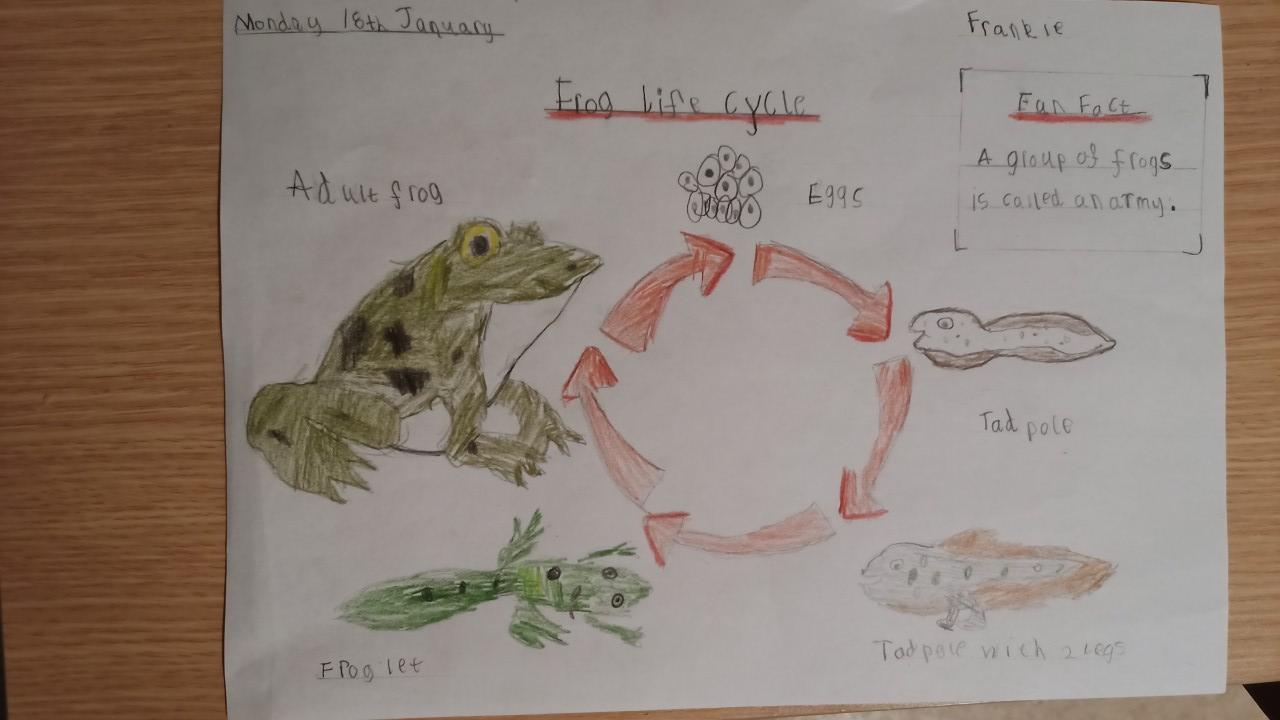 Monday 18th January
Frankie
Frog life cycle
Fun Fact
A group of frogs
is called an army.
Adult frog
Eggs
Tadpole
Tadpole with 2 legs
Froglet